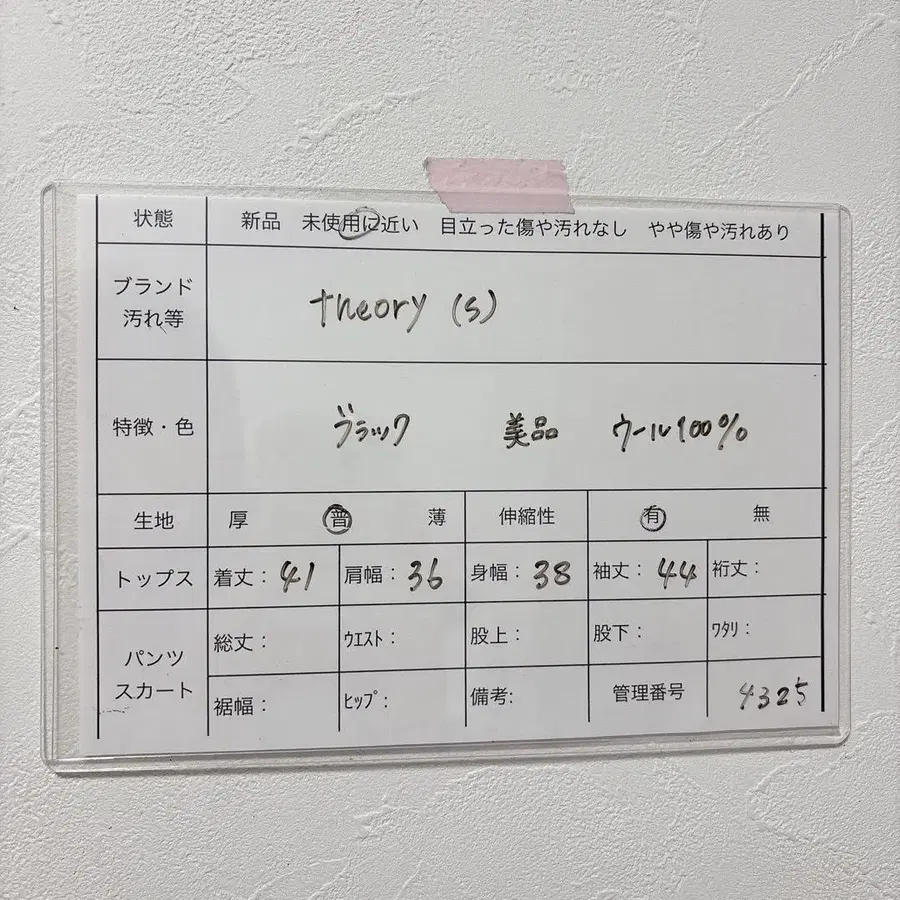 状態 新品 未使用に近い 目立った傷や汚れなし やや傷や汚れあり
ブランド
汚れ等
theory (s)
特徴・色 ブラック 美品 ウール100%
生地 厚 普 薄 伸縮性 有 無
トップス 着丈: 41 肩幅: 36 身幅: 38 袖丈: 44 裄丈:
パンツ
スカート
総丈: ウエスト: 股上: 股下: ワタリ:
裾幅: ヒップ: 備考: 管理番号 4325